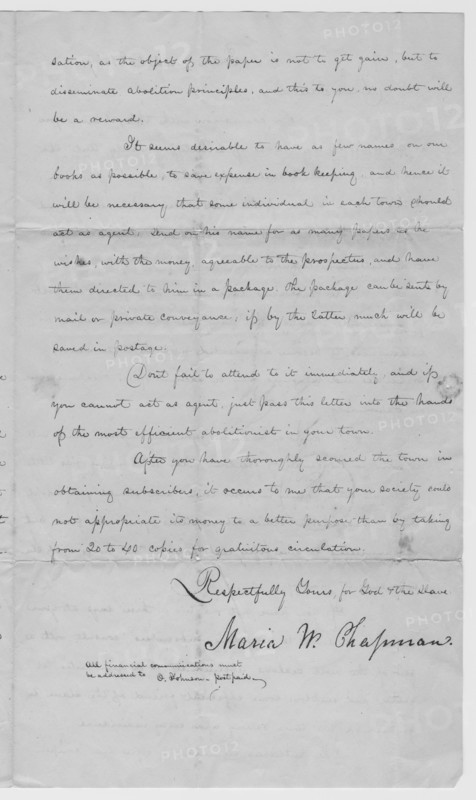 sation, as the object of the paper is not to get gain, but to
disseminate abolition principles, and this to you no doubt will
be a reward.
It seems desirable to have as few names on our
books as possible, to save expense in book keeping, and hence it
will be necessary that some individual in each town should
act as agent, send on his name for as many papers as he
wishes, with the money, agreeable to the prospectus, and have
them directed to him in a package. The package can be sent by
mail or private conveyance; if by the latter much will be
saved in postage.
Don't fail to attend to it immediately, and if
you cannot act as agent, just pass this letter into the hands
of the most efficient abolitionist in your town.
After you have thoroughly scoured the town in
obtaining subscribers, it occurs to me that your society could
not appropriate its money to a better purpose than by taking
from 20 to 40 copies for gratuitous circulation.
Respectfully Yours, for God & the Slave.
Maria W. Chapman.
All financial communications must
be addressed to O. Johnson - post paid
PHOTO12